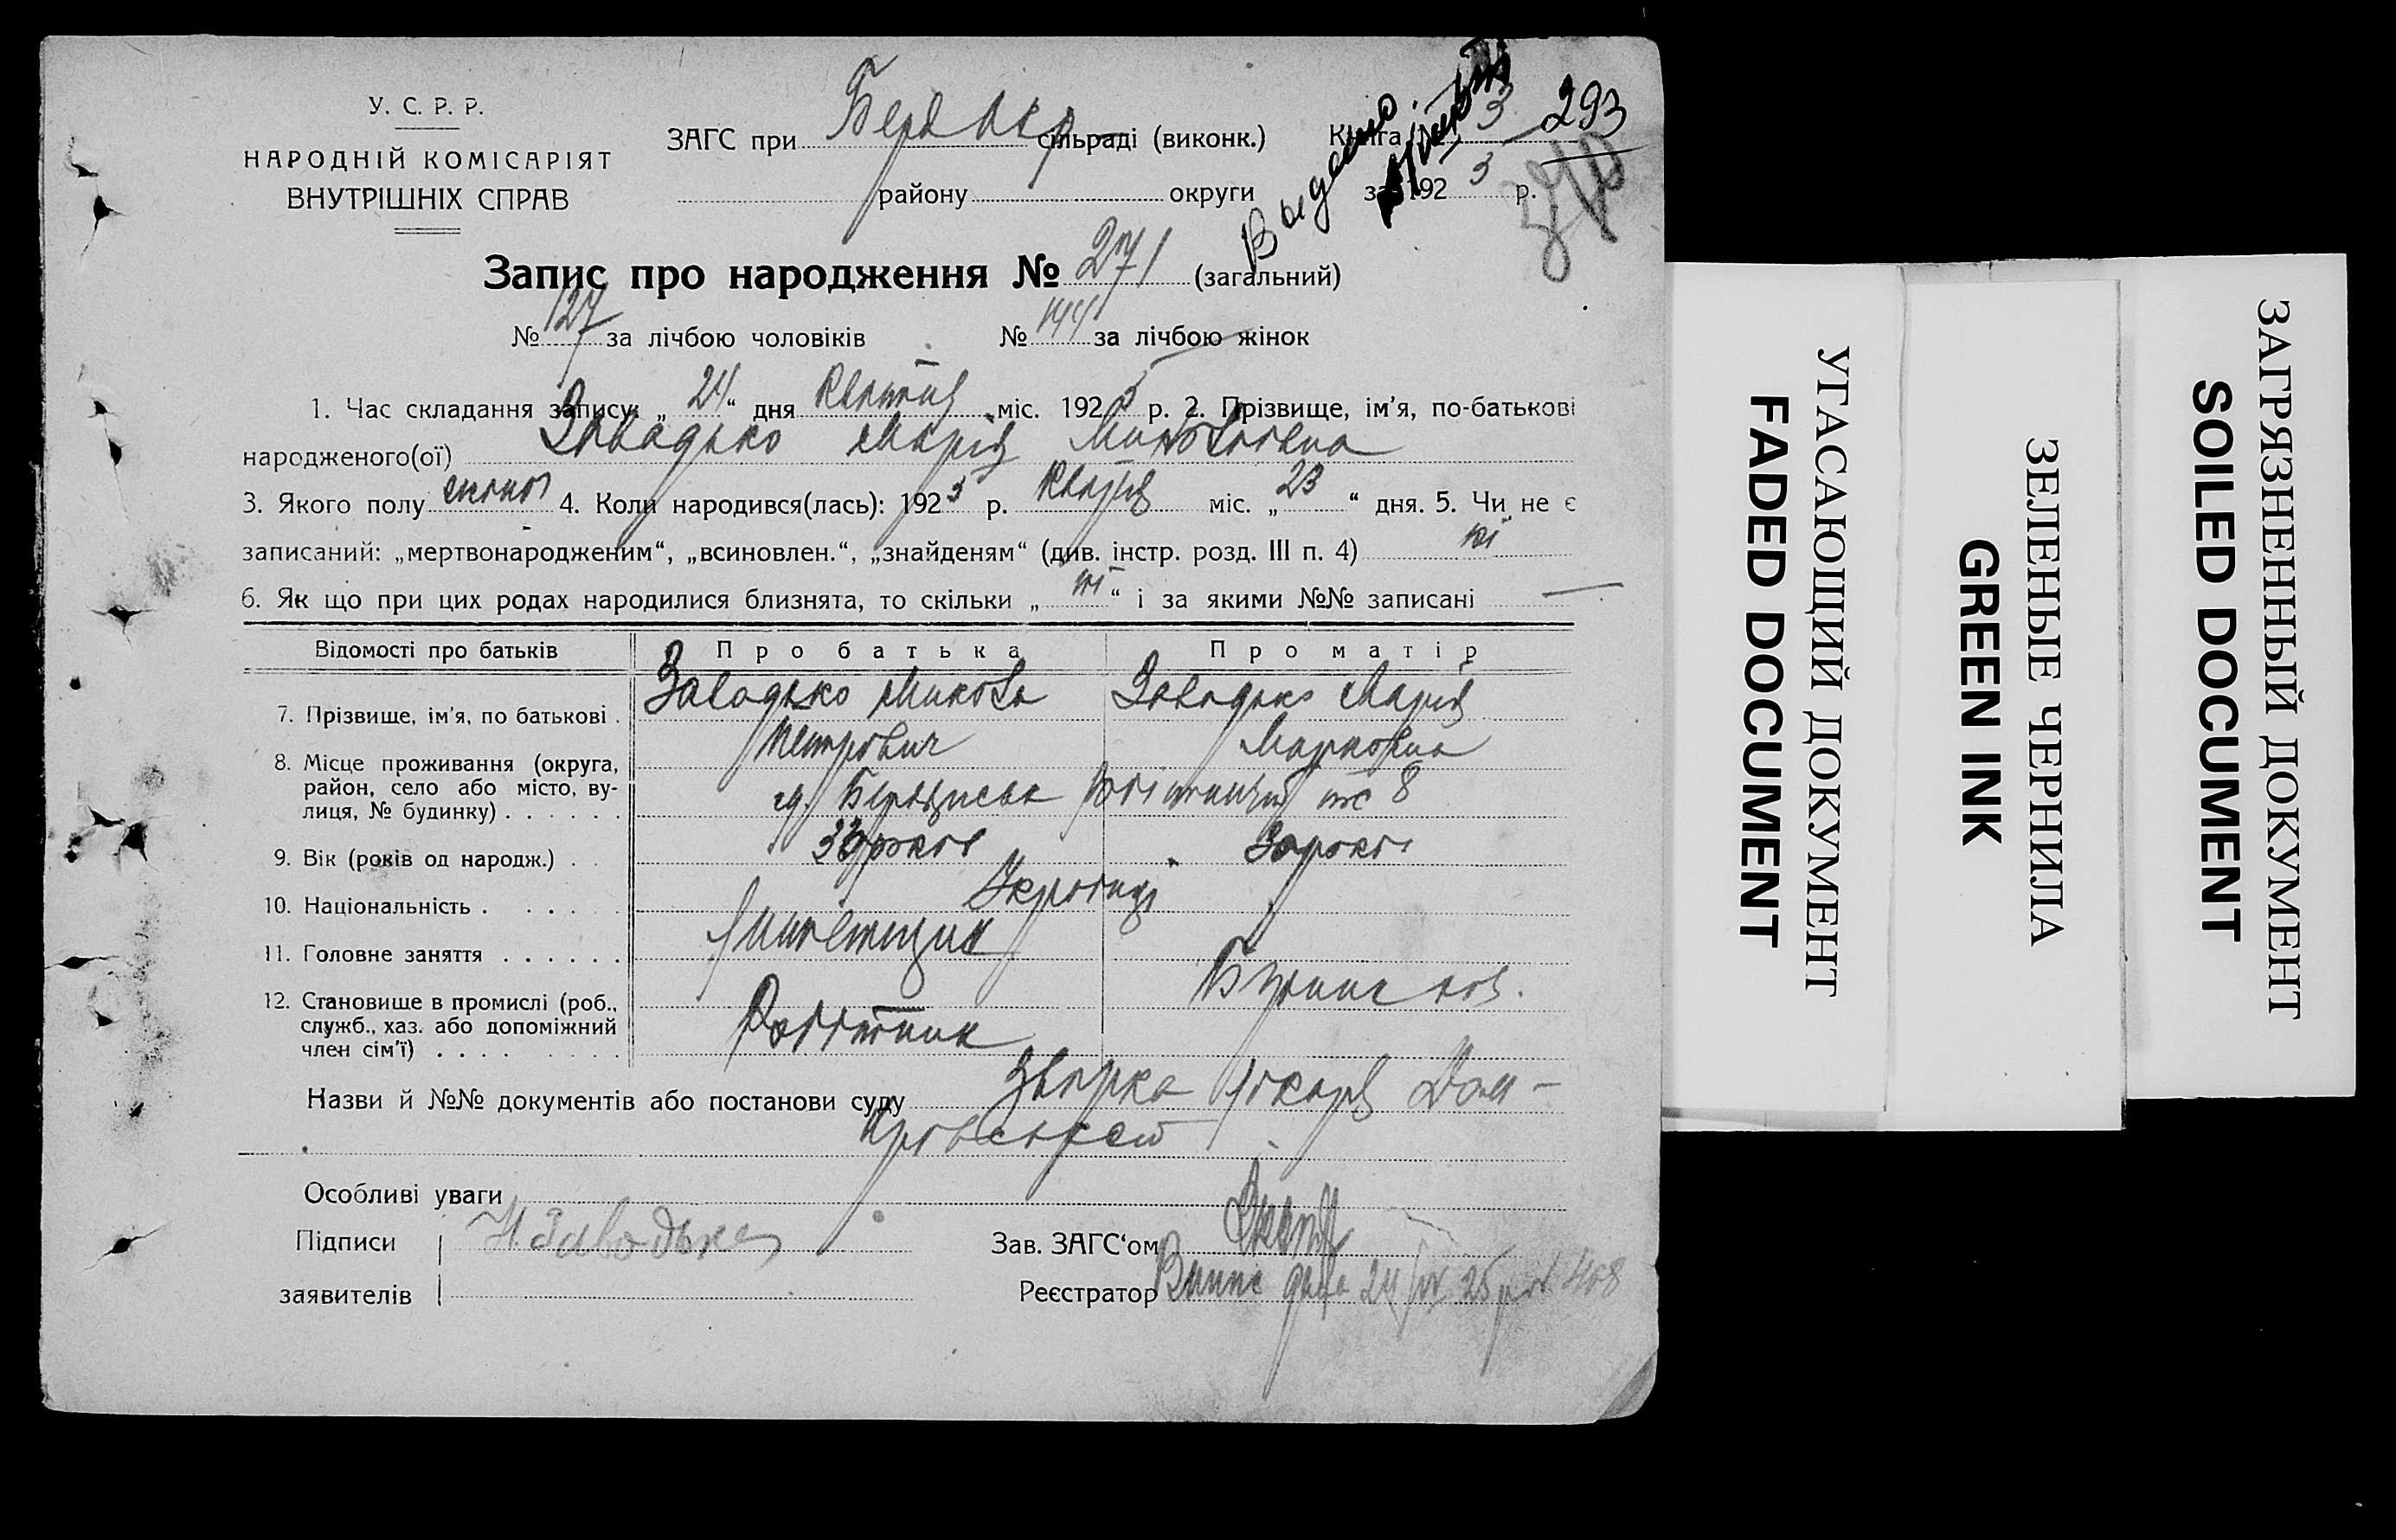 У. С. Р. Р.
НАРОДНІЙ КОМІСАРІЯТ
ВНУТРІШНІХ СПРАВ
ЗАГС при Берд Окр сільраді (виконк.)
району округи
Книга № 3
за 1925 р.
293
Выдано
Запис про народження № 271 (загальний)
№ 127 за лічбою чоловіків № 144 за лічбою жінок
1. Час складання запису: „24“ дня Квітня міс. 1925 р. 2. Прізвище, ім'я, по-батькові
народженого(ої) Завадько Марія Миколаевна
3. Якого полу жіноч 4. Коли народився(лась): 1925 р. Квітня міс. „23“ дня. 5. Чи не є
записаний: „мертвонародженим“, „всиновлен.“, „знайденям“ (див. інстр. розд. III п. 4) ні
6. Як що при цих родах народилися близнята, то скільки „ні“ і за якими №№ записані —
Відомості про батьків Про батька Про матір
7. Прізвище, ім'я, по батькові . Завадько Микола Завадько Марія
Петрович Марковна
8. Місце проживання (округа,
район, село або місто, ву-
лиця, № будинку) . . . . . . Бердянськ 8
9. Вік (років од народж.) . 33 років 30 років
10. Національність . . . . . Українці
11. Головне заняття . . . . . .
12. Становище в промислі (роб.,
служб., хаз. або допоміжний
член сім'ї) . . . . Робітник
Назви й №№ документів або постанови суду
Особливі уваги
Підписи Н. Заводько Зав. ЗАГС'ом
заявителів Реєстратор
ЗАГРЯЗНЕННЫЙ ДОКУМЕНТ
SOILED DOCUMENT
ЗЕЛЕНЫЕ ЧЕРНИЛА
GREEN INK
УГАСАЮЩИЙ ДОКУМЕНТ
FADED DOCUMENT